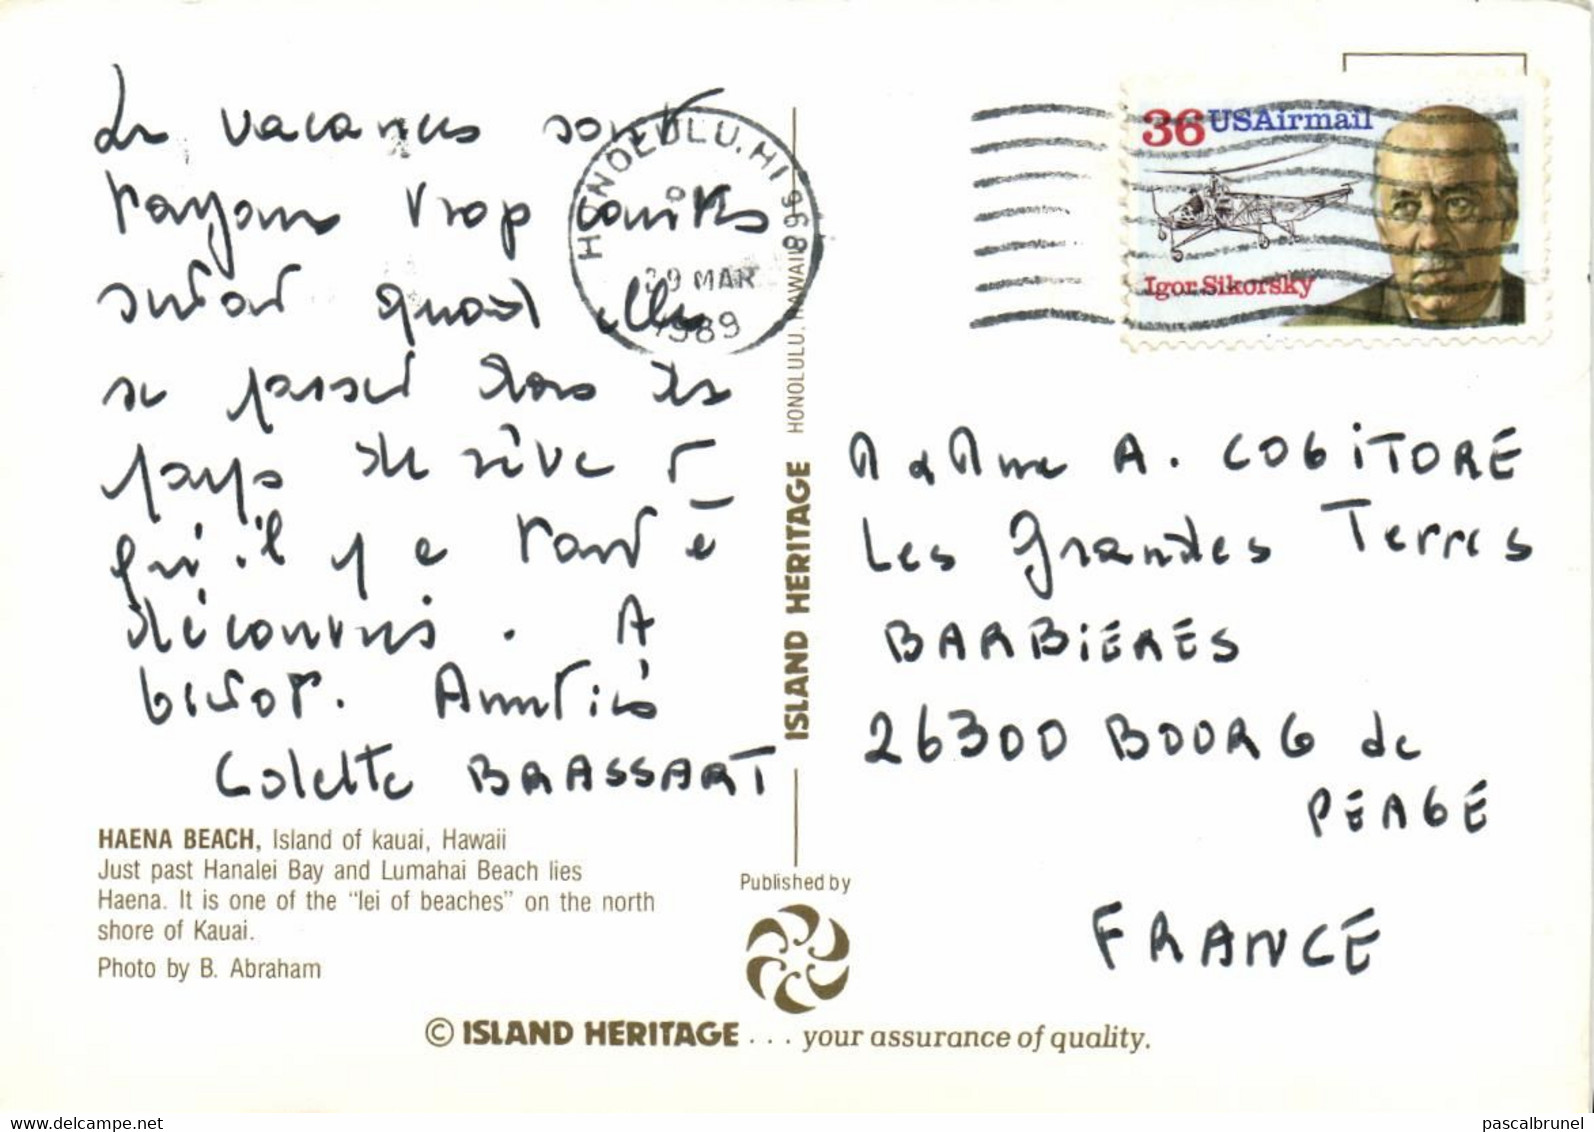 Les vacances sont
toujours trop courtes
surtout quand elles
se passent dans des
pays de rêve et
qu'il y a tant à
découvrir. A
bientôt. Amitiés
Colette BRASSART
HAENA BEACH, Island of kauai, Hawaii
Just past Hanalei Bay and Lumahai Beach lies
Haena. It is one of the "lei of beaches" on the north
shore of Kauai.
Photo by B. Abraham
HONOLULU, HI 968
29 MAR
1989
ISLAND HERITAGE HONOLULU, HAWAII
Published by
36 USAirmail
Igor Sikorsky
M & Mme A. COGITORE
Les Grandes Terres
BARBIERES
26300 BOURG de
PEAGE
FRANCE
© ISLAND HERITAGE . . . your assurance of quality.
pascalbrunel